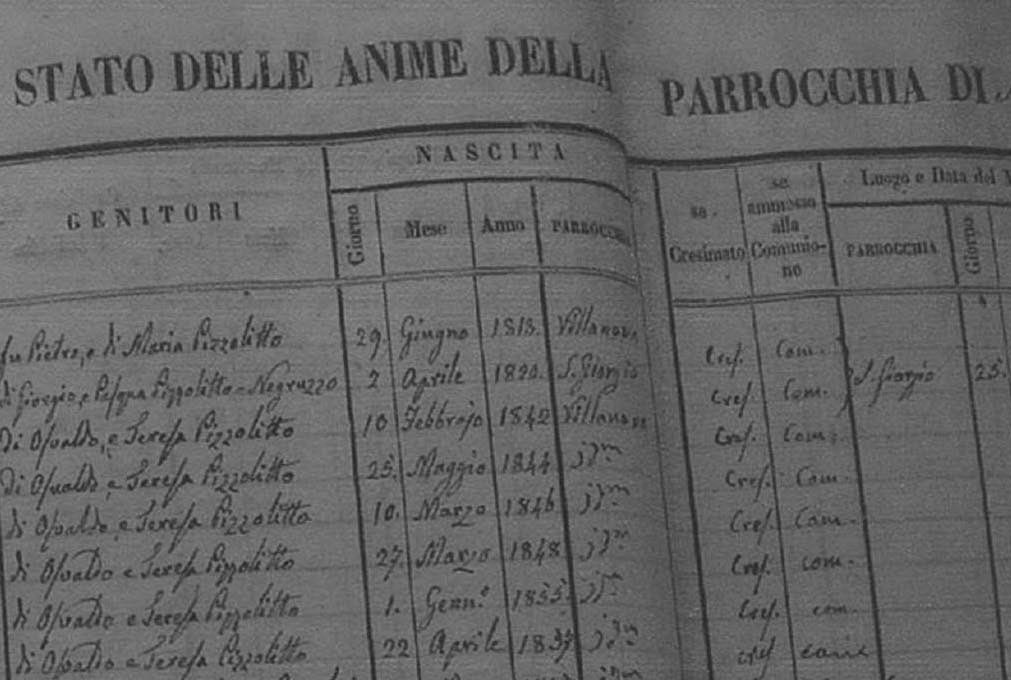 STATO DELLE ANIME DELLA PARROCCHIA DI
NASCITA
GENITORI Giorno Mese Anno PARROCCHIA
se Cresimato
se ammesso alla Comunio-no
Luogo e Data del
PARROCCHIA Giorno
fu Pietro, e di Maria Pizzolitto 29. Giugno 1813. Villanova Cres. Com.
di Giorgio, e Pasqua Pizzolitto-Negruzzo 2 Aprile 1820. S. Giorgio Cres. Com. S. Giorgio 25.
Di Osvaldo, e Teresa Pizzolitto 10 Febbrajo 1842 Villanova Cres. Com.
Di Osvaldo, e Teresa Pizzolitto 25. Maggio 1844 Cres. Com.
di Osvaldo, e Teresa Pizzolitto 10. Marzo 1846 Cres. Com.
di Osvaldo e Teresa Pizzolitto 27. Marzo 1848. Cres. com.
di Osvaldo e Teresa Pizzolitto 1. Genn.º Cres. com.
di Osvaldo e Teresa Pizzolitto 22 Aprile cres